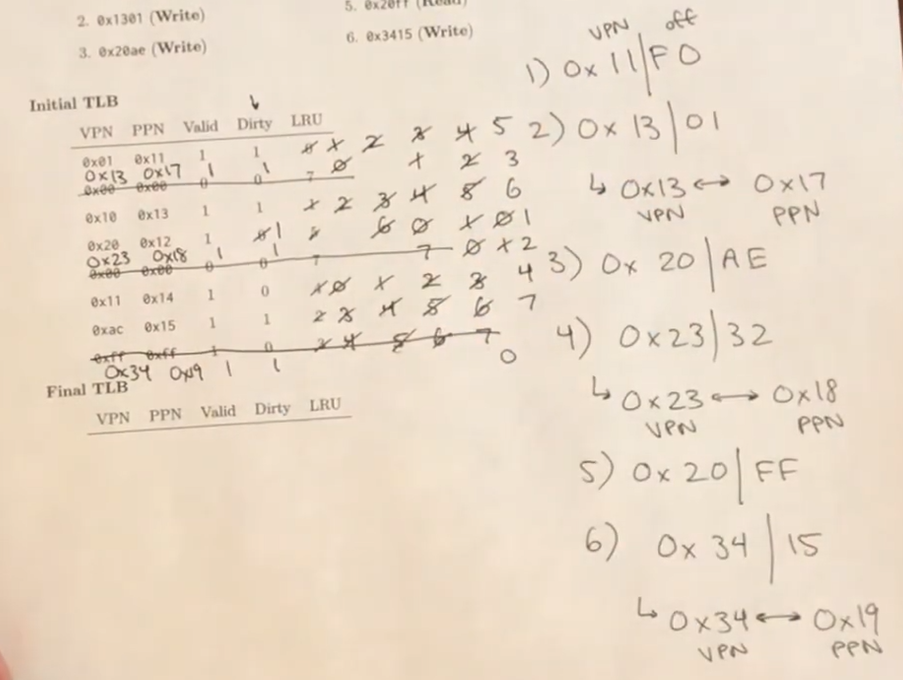 2. 0x1301 (Write)
5. 0x20ff (Read)
3. 0x20ae (Write)
6. 0x3415 (Write)
Initial TLB
VPN PPN Valid Dirty LRU
0x01 0x11 1 1 0 1 2 3 4 5
0x13 0x17 1 1 0 1 2 3
0x00 0x00 0 0 7
0x10 0x13 1 1 1 2 3 4 5 6
0x20 0x12 1 0 1 5 6 0 1 0 1
0x23 0x18 1 1 7 0 1 2
0x00 0x00 0 0 7
0x11 0x14 1 0 1 0 1 2 3 4
0xac 0x15 1 1 2 3 4 5 6 7
0xff 0xff 1 0 3 4 5 6 7
0x34 0x19 1 1 0
Final TLB
VPN PPN Valid Dirty LRU
VPN off
1) 0x11|F0
2) 0x13|01
↳ 0x13 ↔ 0x17
VPN PPN
3) 0x20|AE
4) 0x23|32
↳ 0x23 ↔ 0x18
VPN PPN
5) 0x20|FF
6) 0x34|15
↳ 0x34 ↔ 0x19
VPN PPN